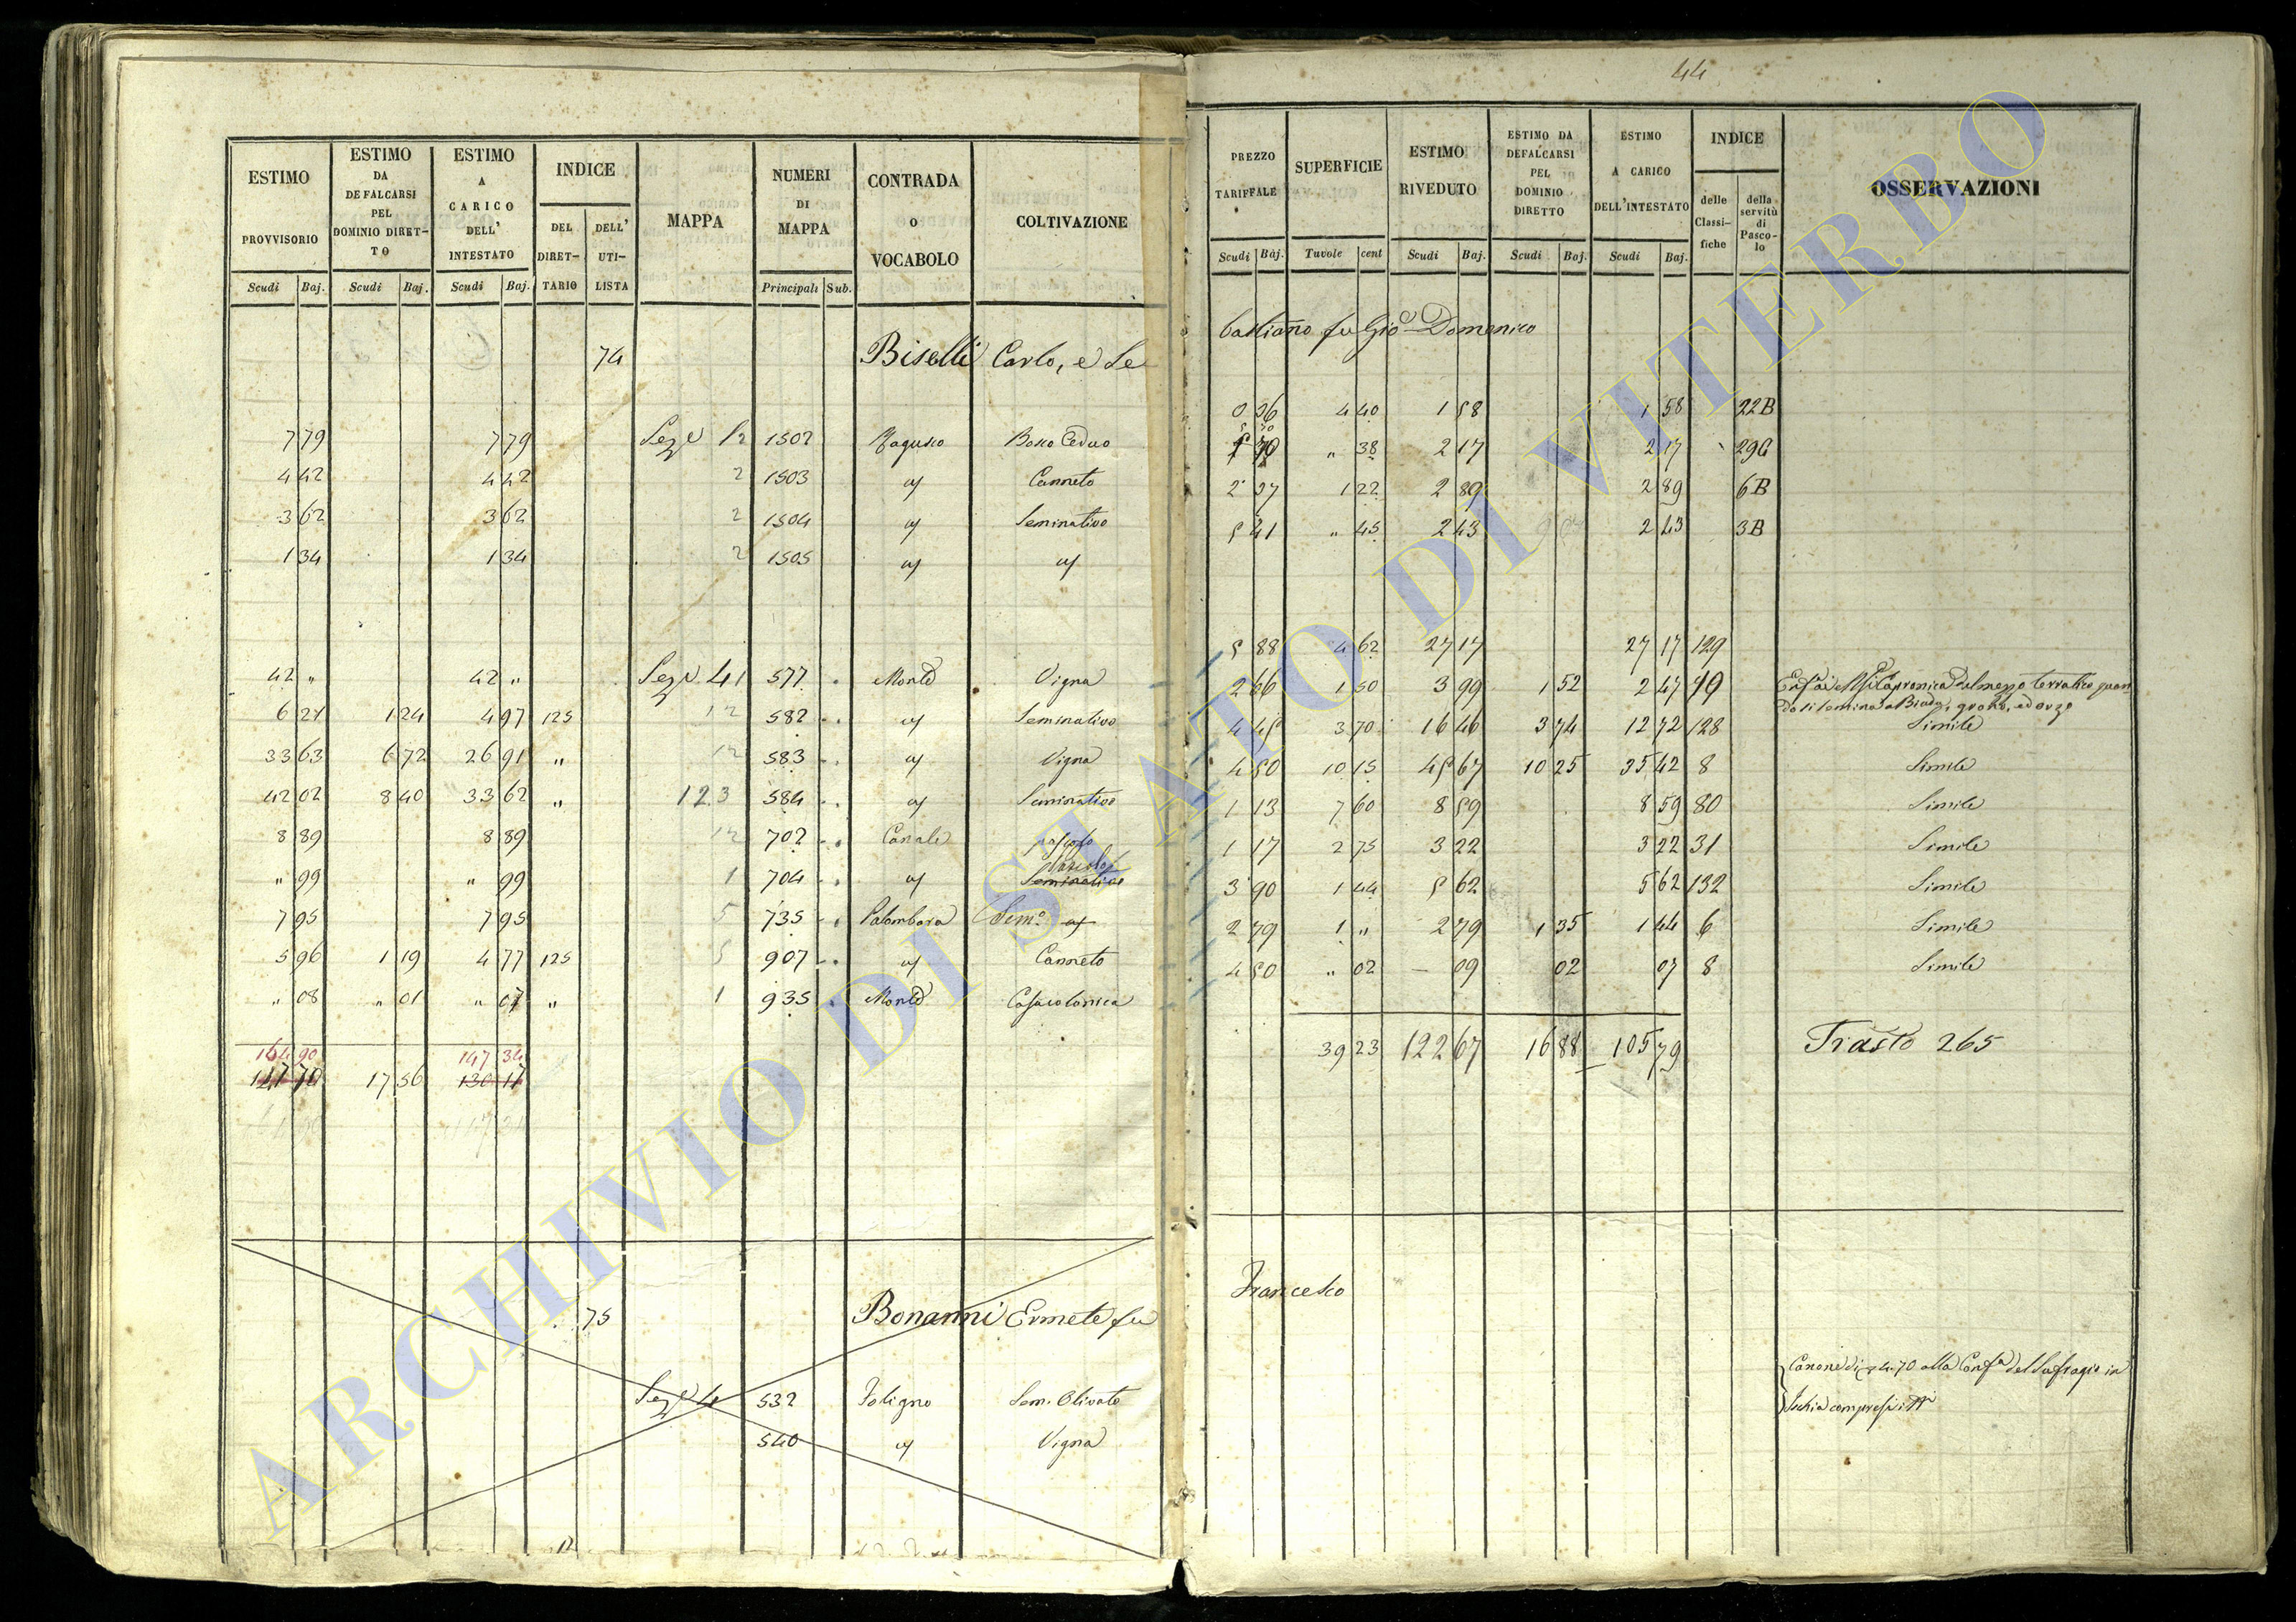 44
ESTIMO PROVVISORIO Scudi Baj.
ESTIMO DA DEFALCARSI PEL DOMINIO DIRETTO Scudi Baj.
ESTIMO A CARICO DELL' INTESTATO Scudi Baj.
INDICE DEL DIRETTARIO DELL' UTILISTA
MAPPA
NUMERI DI MAPPA Principali Sub.
CONTRADA O VOCABOLO
COLTIVAZIONE
PREZZO TARIFFALE Scudi Baj.
SUPERFICIE Tavole cent
ESTIMO RIVEDUTO Scudi Baj.
ESTIMO DA DEFALCARSI PEL DOMINIO DIRETTO Scudi Baj.
ESTIMO A CARICO DELL'INTESTATO Scudi Baj.
INDICE delle Classifiche della servitù di Pascolo
OSSERVAZIONI
74 Biselli Carlo, e Se
bastiano fu Gio Domenico
7 79 7 79 Sez 1502 Bosco Ceduo 0 36 4 40 1 58 1 58 22B
4 42 4 42 2 1503 Canneto " 38 2 17 2 17 29G
3 62 3 62 2 1504 Seminativo 2 37 1 22 2 89 2 89 6B
1 34 1 34 2 1505 5 41 " 45 2 43 2 43 3B
42 " 42 " Sez 577 Monte Vigna 5 88 4 62 27 17 27 17 129
6 21 1 24 4 97 125 12 582 Seminativo 2 66 1 50 3 99 1 52 2 47 79
33 63 6 72 26 91 " 12 583 Vigna 4 45 3 70 16 46 3 74 12 72 128 Simile
42 02 8 40 33 62 " 12 3 584 Seminativo 4 50 10 15 45 67 10 25 35 42 8 Simile
8 89 8 89 12 702 Canale pascolo 1 13 7 60 8 59 8 59 80 Simile
" 99 " 99 1 704 pascolo Seminativo 1 17 2 75 3 22 3 22 31 Simile
7 95 7 95 5 735 Palombara Sem.o 3 90 1 44 5 62 5 62 132 Simile
5 96 1 19 4 77 125 5 907 Canneto 2 79 1 " 2 79 1 35 1 44 6 Simile
" 08 " 01 " 07 " 1 935 Monte Casa colonica 4 50 " 02 09 02 07 8 Simile
164 90 147 34
147 70 17 56 130 17 39 23 122 67 16 88 105 79 Trasto 265
75 Bonanni Ermete fu
Francesco
Sez 4 532 Foligno Sem. Olivato Canone di 4.70 alla Conf.a del Sufragio in
Ischia compresi i
540 Vigna
ARCHIVIO DI STATO DI VITERBO